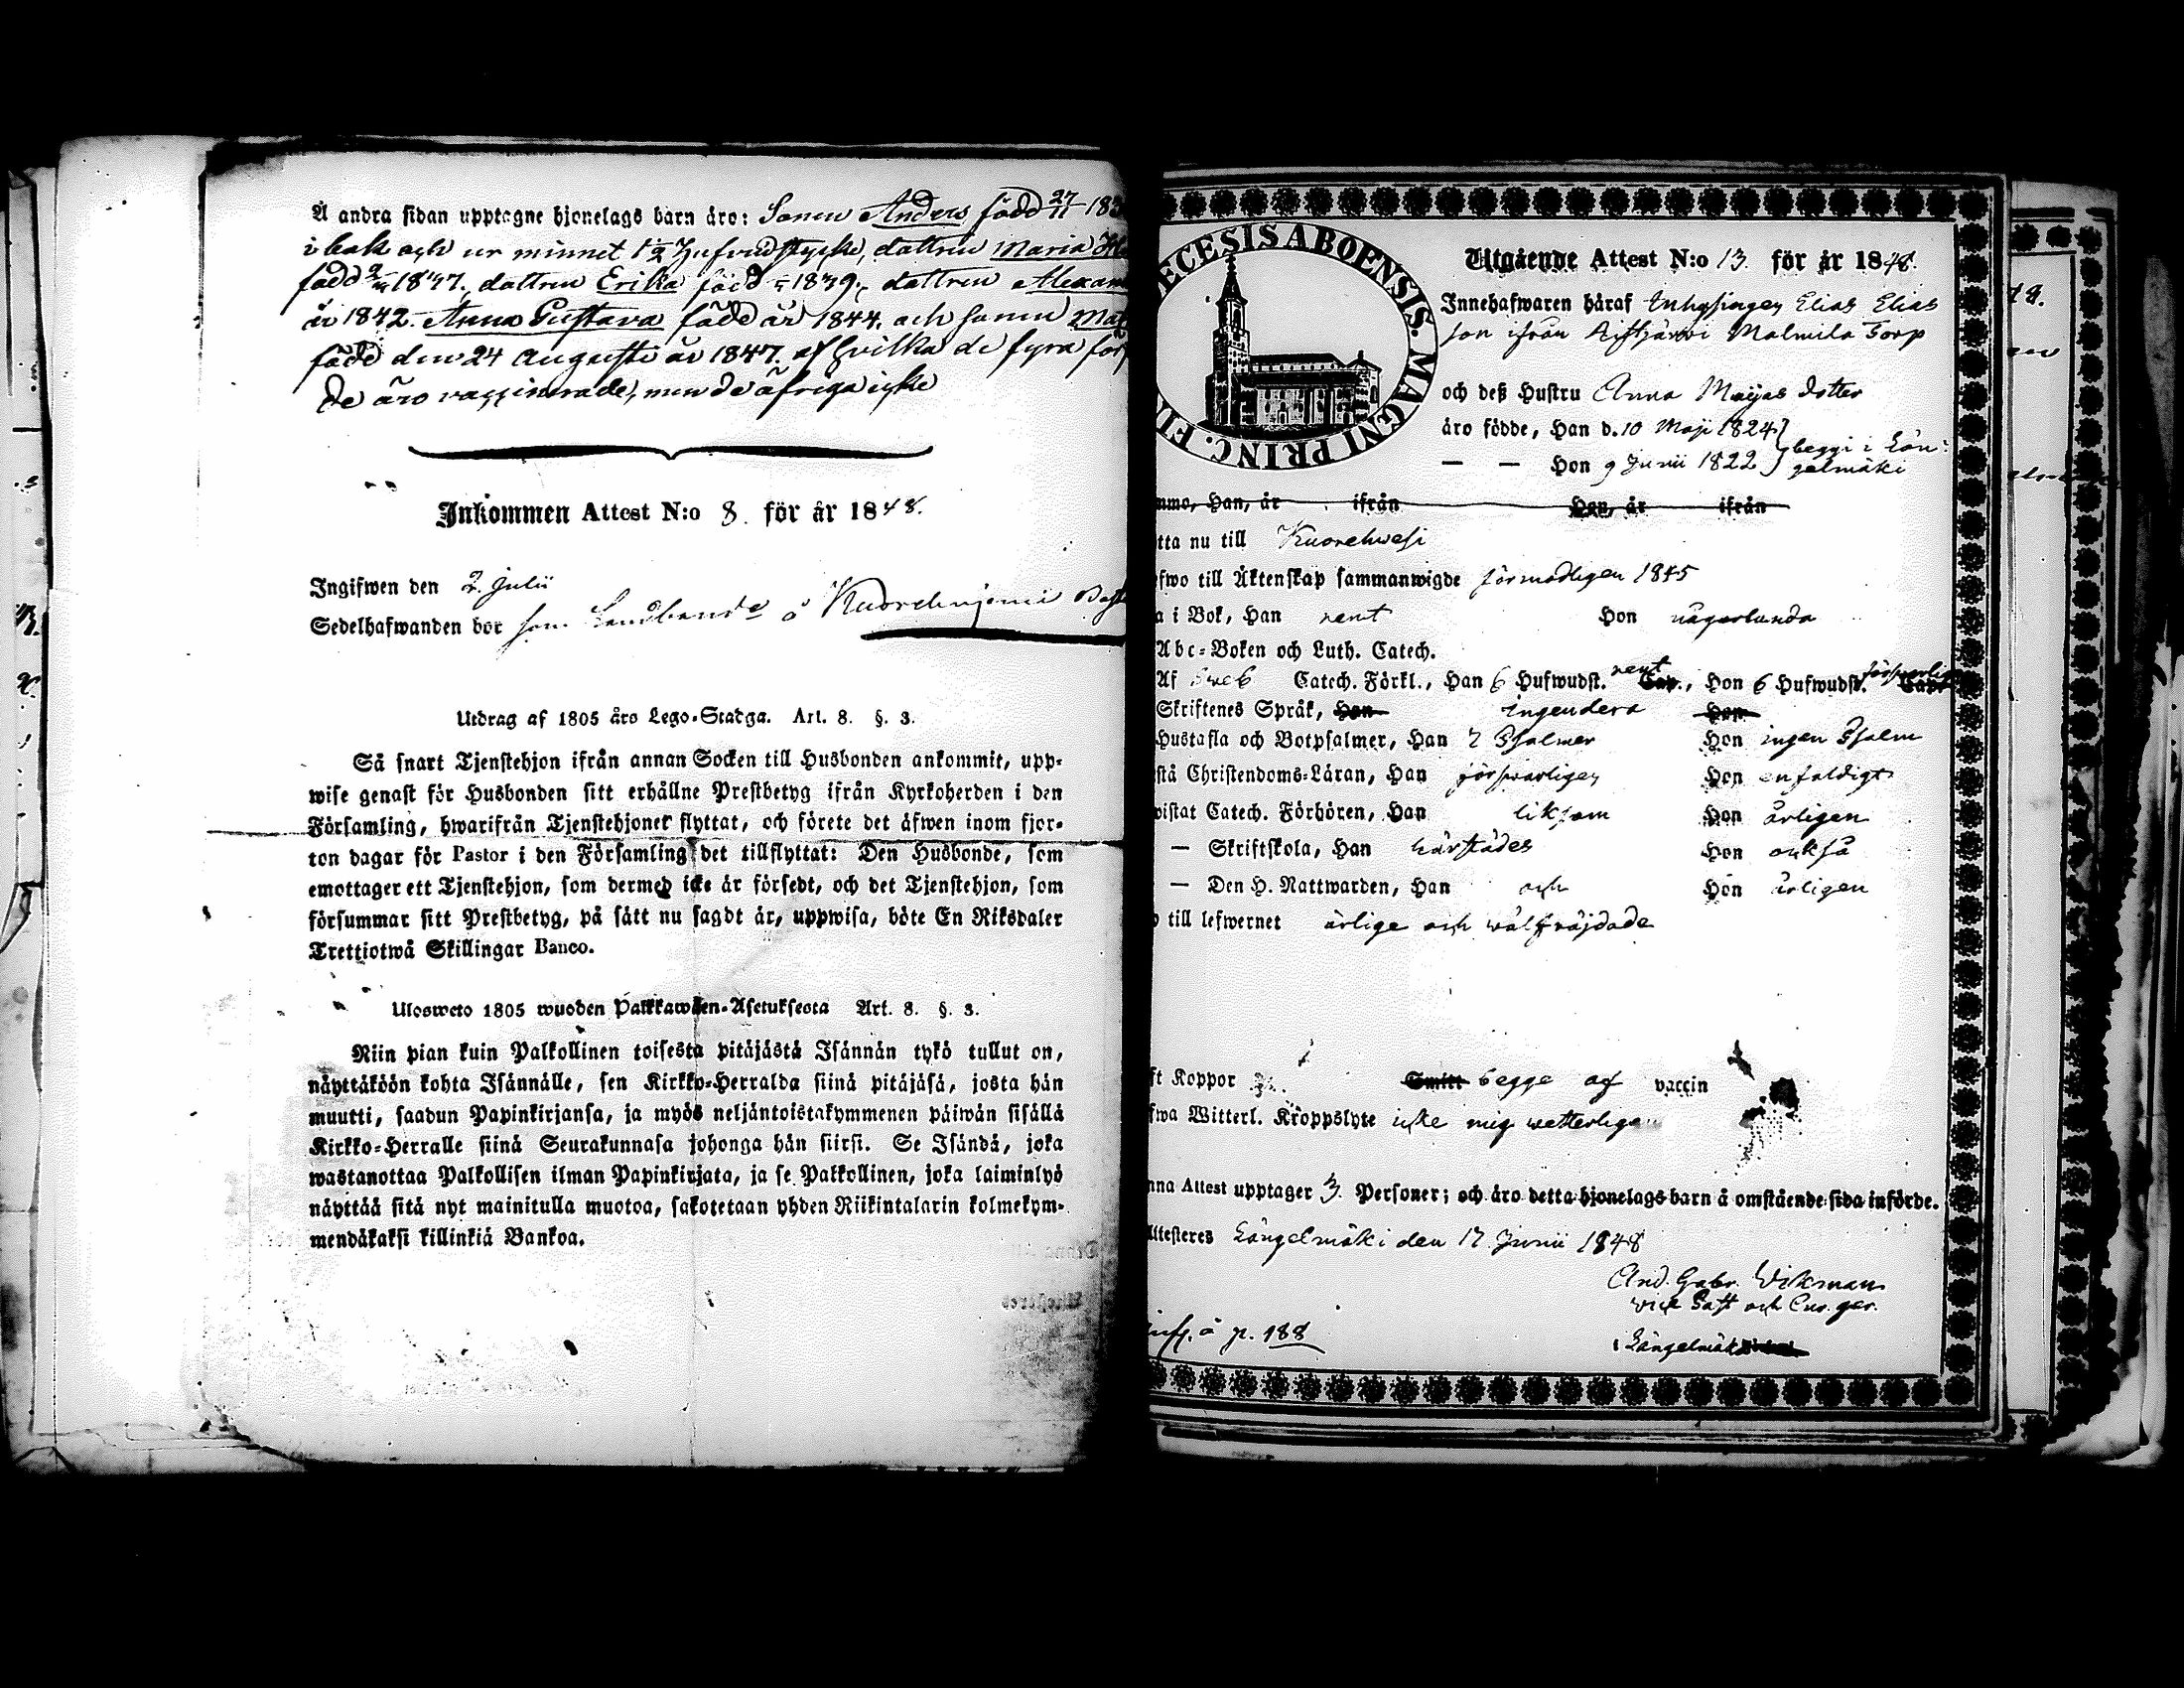 Å andra sidan upptagne hjonelags barn äro: Sonen Anders född 27/11 183
i bok och ur minnet 1 1/2 hufvudstycke, dottren Maria
född 1837, dottren Erika född 1839, dottren Alexan
år 1842. Anna Gustava född år 1844. och sonen Mat
född den 24 Augusti år 1847. af hvilka de fyra för
de äro vaccinerade, men de öfriga icke
Inkommen Attest N:o 8. för år 1848.
Ingifwen den 2 Julii
Sedelhafwanden bor som å
Utdrag af 1805 års Lego-Stadga. Art. 8. §. 3.
Så snart Tjenstehjon ifrån annan Socken till Husbonden ankommit, upp-
wise genast för Husbonden sitt erhållne Prestbetyg ifrån Kyrkoherden i den
Församling, hwarifrån Tjenstehjonet flyttat, och förete det äfwen inom fjor-
ton dagar för Pastor i den Församling det tillflyttat: Den Husbonde, som
emottager ett Tjenstehjon, som dermed icke är försedt, och det Tjenstehjon, som
försummar sitt Prestbetyg, på sätt nu sagdt är, uppwisa, böte En Riksdaler
Trettiotwå Skillingar Banco.
Ulosweto 1805 wuoden Palkkawäen-Asetuksesta Art. 8. §. 3.
Niin pian kuin Palkollinen toisesta pitäjästä Isännän tykö tullut on,
näyttäköön kohta Isännälle, sen Kirkko-Herralda siinä pitäjäsä, josta hän
muutti, saadun Papinkirjansa, ja myös neljäntoistakymmenen päiwän sisällä
Kirkko-Herralle siinä Seurakunnasa johonga hän siirsi. Se Isändä, joka
wastanottaa Palkollisen ilman Papinkirjata, ja se Palkollinen, joka laiminlyö
näyttää sitä nyt mainitulla muotoa, sakotetaan yhden Riikintalarin kolmekym-
mendäkaksi killinkiä Bankoa.
ECESIS ABOENSIS. MAGNI PRINC. FI
Utgående Attest N:o 13. för år 1848.
Innehafwaren häraf Inhysingen Elias Elias
son ifrån Torp
och deß Hustru Anna Maijas dotter
äro födde, Han d. 10 Maji 1824
— — Hon 9 Junii 1822 } begge i Län-
gelmäki
mmo, Han, år ifrån Hon, år ifrån
tta nu till Kuorehwesi
efwo till Äktenskap sammanwigde förmodligen 1845
a i Bok, Han rent Hon någorlunda
Abc-Boken och Luth. Catech.
Af Sweb Catech. Förkl., Han 6 Hufwudst. rent Cap., Hon 6 Hufwudst. försvarligt Cap.
Skriftenes Språk, Han ingendera Hon
Hustafla och Botpsalmer, Han 2 Psalmer Hon ingen Psalm
stå Christendoms-Läran, Han försvarligen Hon enfaldigt
wistat Catech. Förhören, Han liksom Hon årligen
— Skriftskola, Han härstädes Hon också
— Den H. Nattwarden, Han och Hon årligen
p till lefwernet ärlige och wälfräjdade
ft Koppor Smitt begge af vaccin
fwa Witterl. Kroppslyte icke mig wetterligen
nna Attest upptager 3. Personer; och äro detta hjonelags barn å omstående sida införde.
Attesteres Längelmäki den 17 Junii 1848
And. Gabr. Wikman
vice Past och Cur. ger.
i Längelmäki
å p. 188